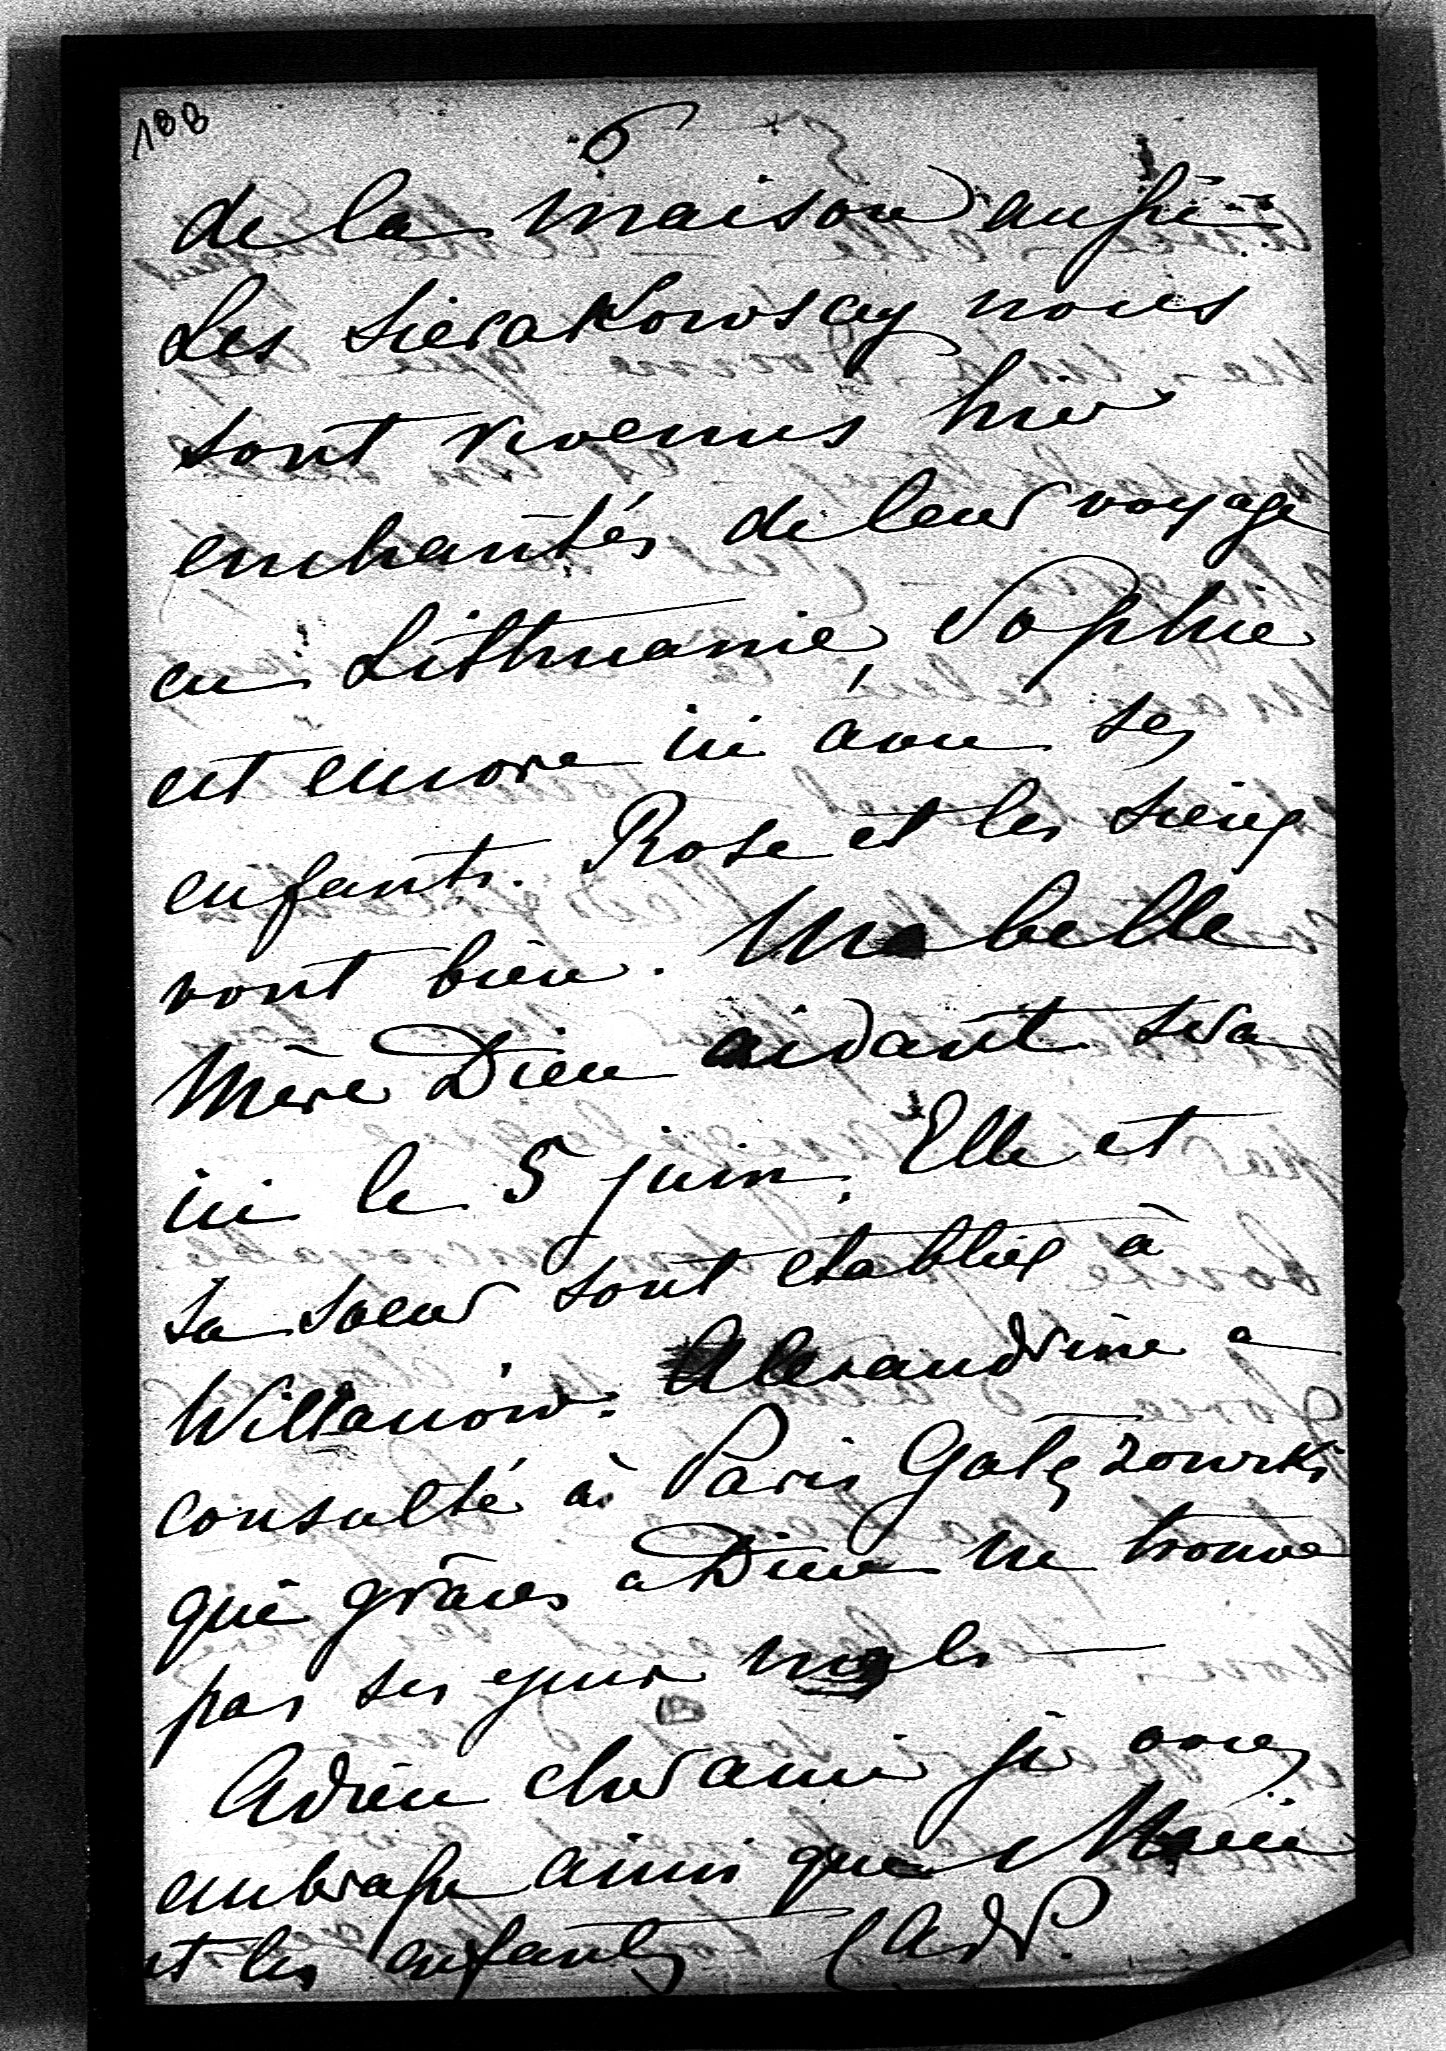 188
6
de la maison aussi —
Les Sierakowscy nous
sont revenus hier
enchantés de leur voyage
en Lithuanie, Sophie
est encore ici avec ses
enfants. Rose et les siens
vont bien. Ma belle
Mère Dieu aidant sera
ici le 5 juin. Elle et
sa soeur sont etablies à
Willanów. Alexandrine a
consulté à Paris Gałęzowski
qui grâces a Dieu ne trouve
pas ses yeux mals —
Adieu cher ami je vous
embrasse ainsi que Marie
et les enfants